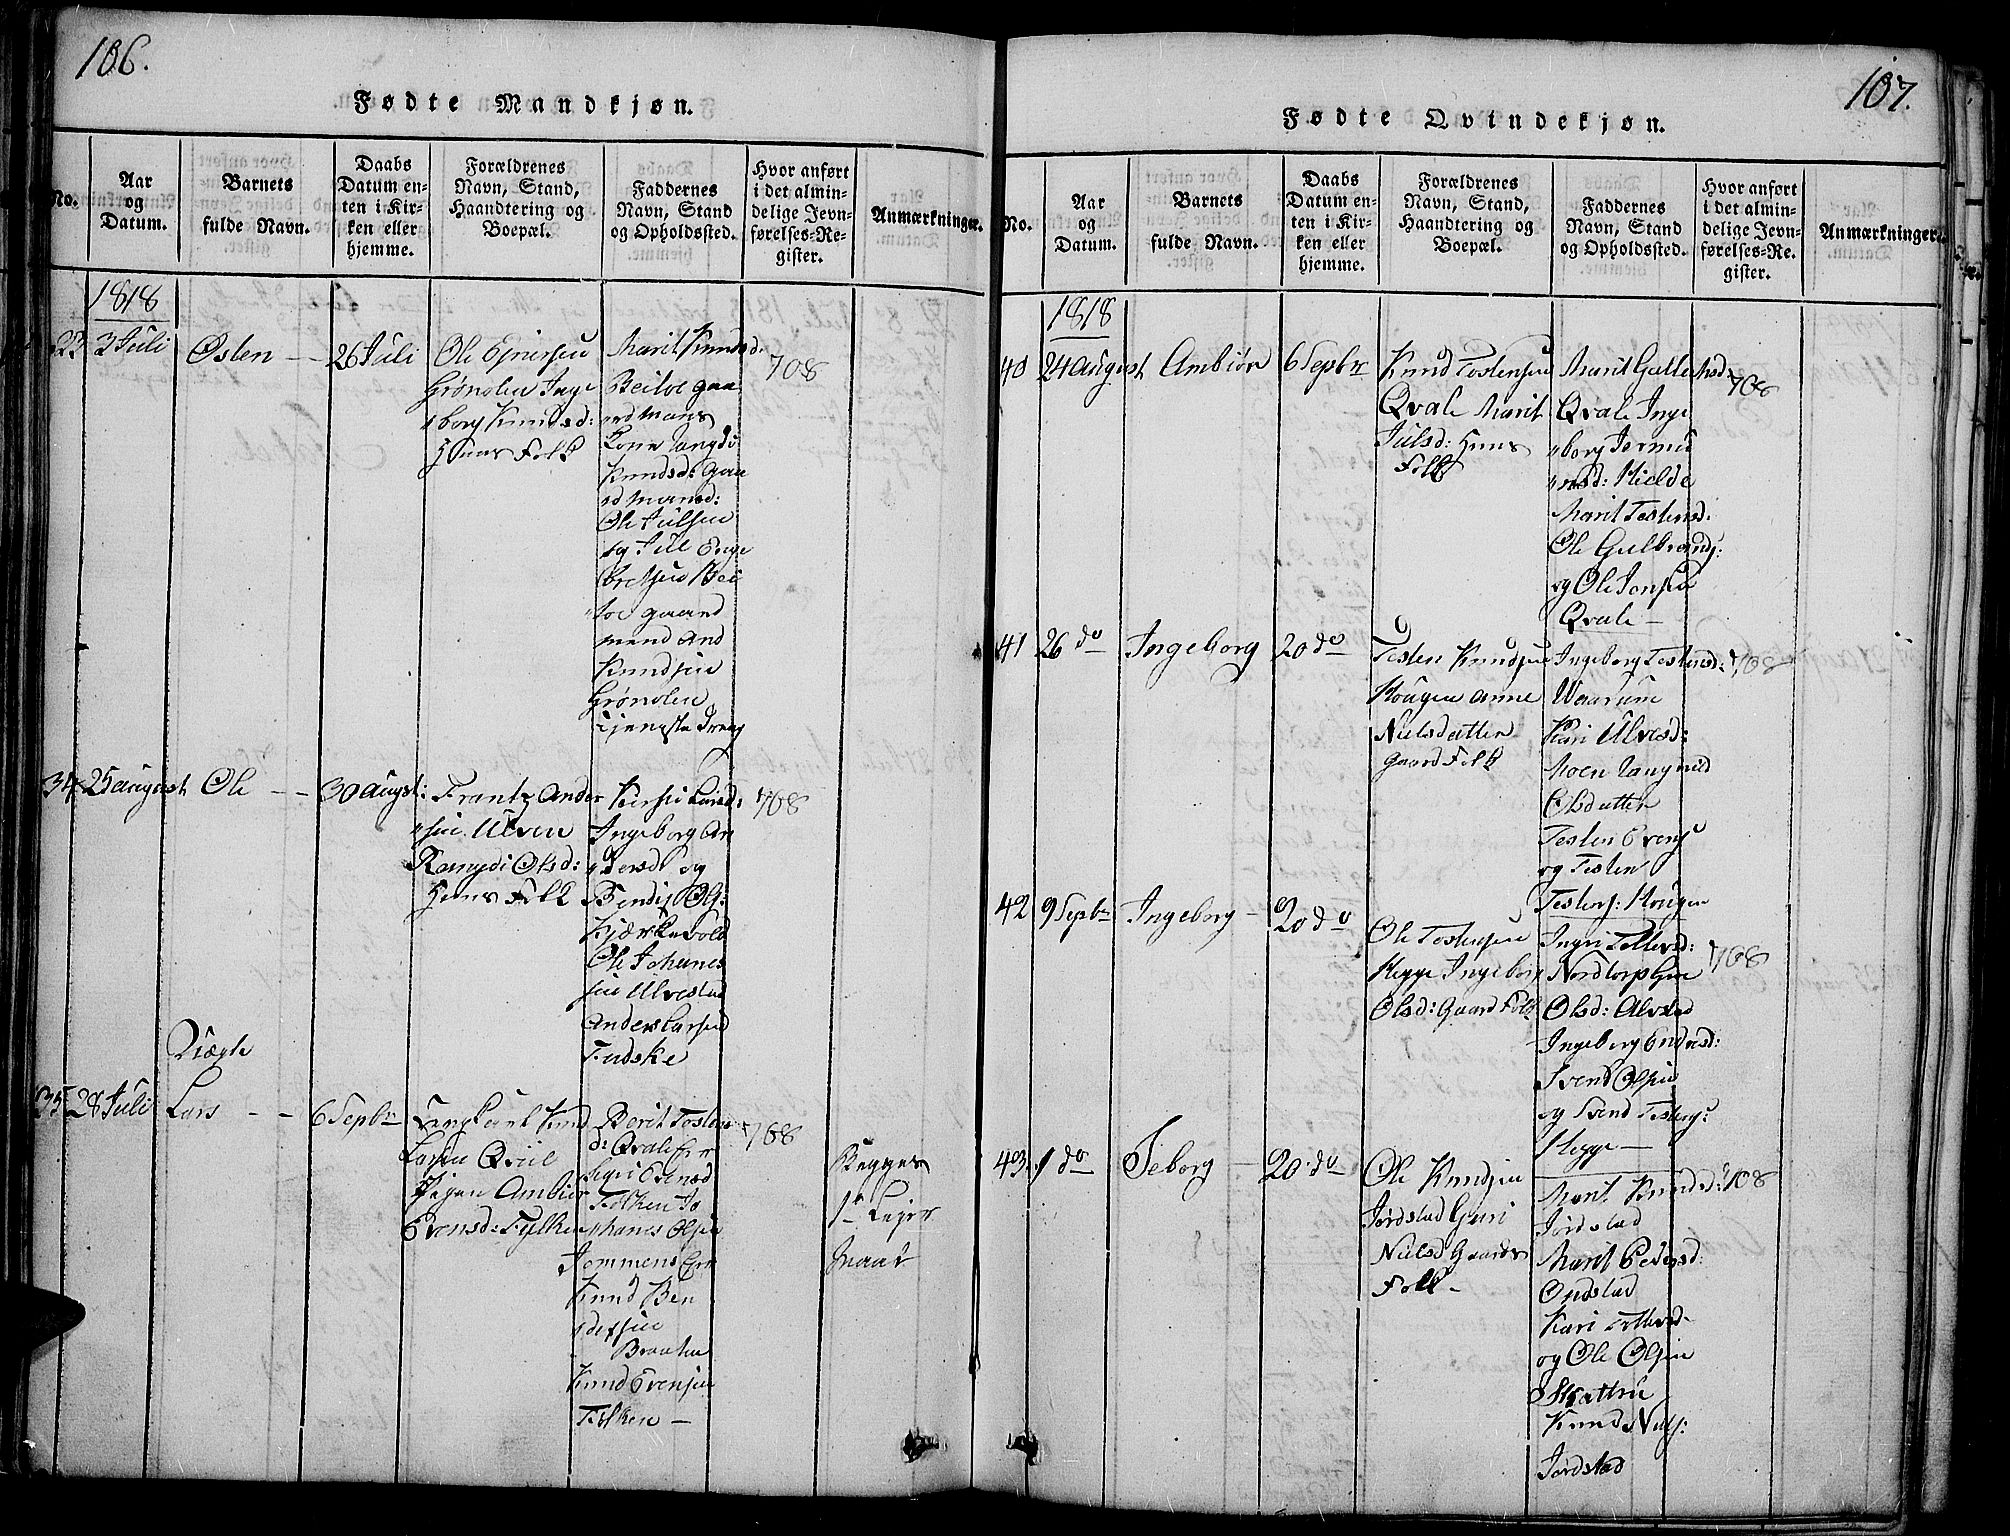 106.
Fødte Mandkjøn.
No.
Aar
og
Datum.
Barnets
fulde Navn.
Daabs
Datum en-
ten i Kir-
ken eller
hjemme.
Forældrenes
Navn, Stand,
Haandtering og
Boepæl.
Faddernes
Navn, Stand
og Opholdssted.
Hvor anført
i det almin-
delige Jevn-
førelses-Re-
gister.
Anmærkninger.
1818
33
3 Juli
Østen
26 Juli
Ole
Grønolen Inge
borg Knudsd:
Huus Folk
Marit Knudsd.
Beitoe gaa
rdmans
Knudsd: gaa
rdmansd:
Ole Julsen
og Jul Enge
bretsen Bei
toe gaard
mend And
Knudsen
Grønolen
tjenste Dreng
708
34
25 august
Ole
30 august:
Frantz Ander
sen Ulven
Olsd:
Huus Folk
Larsd:
Ingeborg An
dersd og
Bendix Ols:
Ole Johanes
sen Ulvestad
Anders Larsen
708
Uægte
35
28 Juli
Lars
6 Sepbr
Knud
Larsen
Pigen Ambiør
Evensd:
Berit Tosten
d: Qvale
Sigri Evensd
hanes Olsen
Knud Ben
dixsen
Braaten
Knud Evensen
708
Begges
1te Leier
maal
107.
Fødte Qvindekjøn.
No.
Aar
og
Datum.
Barnets
fulde Navn.
Daabs
Datum en-
ten i Kir-
ken eller
hjemme.
Forældrenes
Navn, Stand,
Haandtering og
Boepæl.
Faddernes
Navn, Stand
og Opholdssted.
Hvor anført
i det almin-
delige Jevn-
førelses-Re-
gister.
Anmærkninger.
1818
40
24 august
Ambiør
6 Sepbr
Knud Tostensen
Qvale Marit
Julsd: Huus
Folk
Marit
Qvale Inge
borg
Marit Tostensd.
Ole Gulbrands:
og Ole Jonsen
Qvale
708
41
26 do
Ingeborg
20 do
Tosten Knudsen
Hougen Anne
Nielsdatter
gaard Folk
Ingeborg Tostensd:
Kari Ulvesd:
Moen
Olsdatter
Tosten Evens
og Tosten
Tostens: Hougen
708
42
9 Sepbr
Ingeborg
20 do
Ole Tostensen
Hegge Ingeborg
Olsd: Gaard Folk
Ingri
Nordtorp Guri
Olsd: Alvstad
Ingeborg Endresd:
Svend Olsen
og Svend Tostens:
Hegge
708
43.
1 do
Seborg
20 do
Ole Knudsen
Jordstad Guri
Nielsd Gaards
Folk
Marit Knudsd:
Jordstad
Marit Pedersd:
Ondstad
Kari
og Ole Olsen
Knud Niels:
Jordstad
708